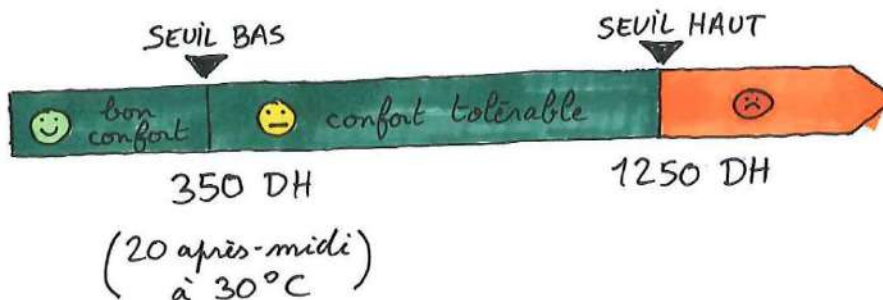 SEUIL BAS
SEUIL HAUT
bon
confort
confort tolérable
350 DH
1250 DH
(20 après-midi)
à 30°C